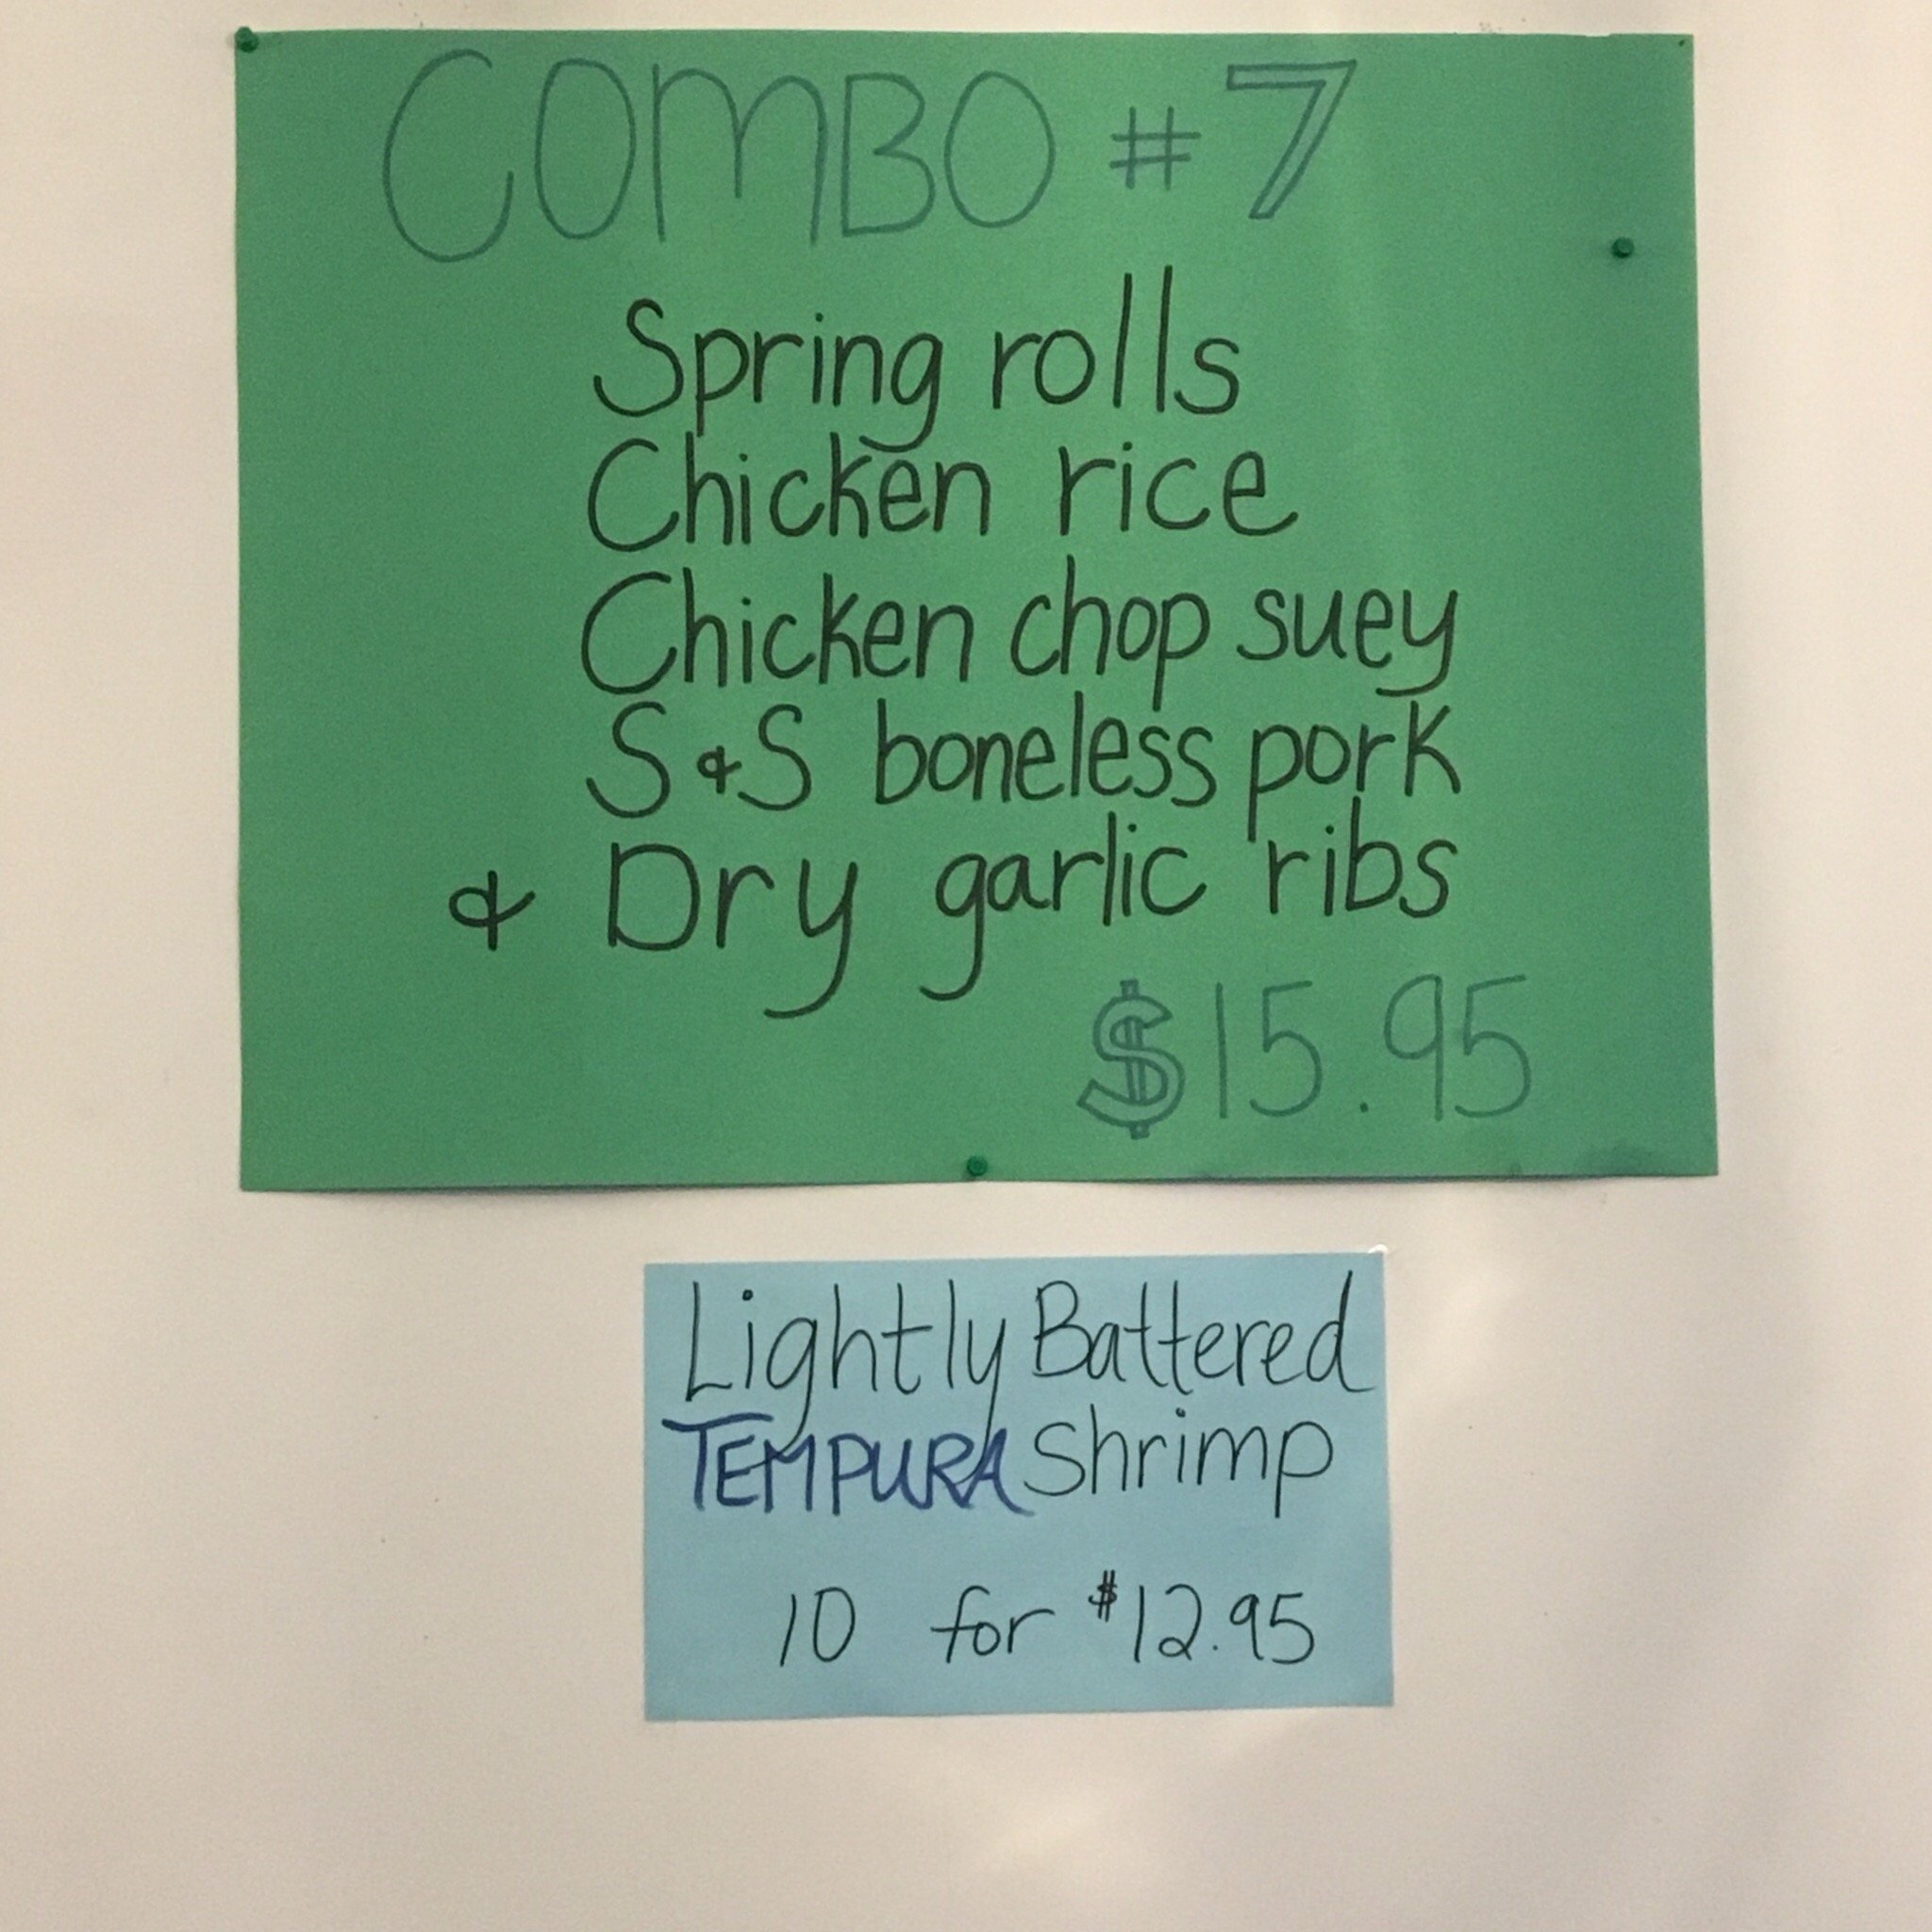 COMBO #7
Spring rolls
Chicken rice
Chicken chop suey
S & S boneless pork
& Dry garlic ribs
$15.95
Lightly Battered
TEMPURA Shrimp
10 for $12.95